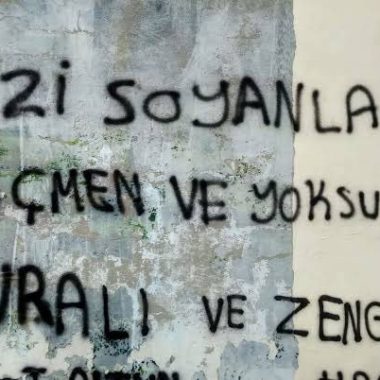 Zİ SOYANLA
ÇMEN VE YOKSU
VRALI VE ZENG